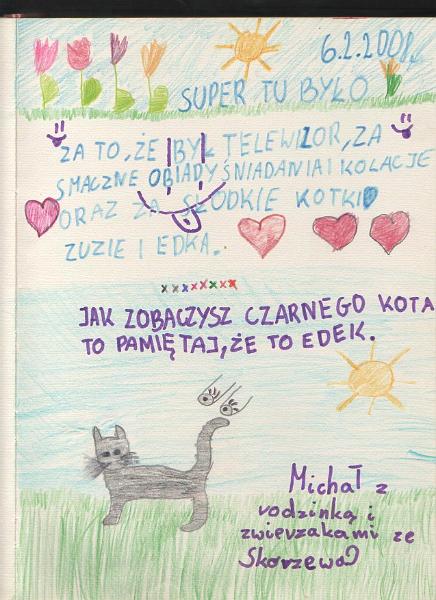 6.2.2008r.
SUPER TU BYŁO
ZA TO, ŻE BYŁ TELEWIZOR, ZA
SMACZNE OBIADY ŚNIADANIA I KOLACJE
ORAZ ZA SŁODKIE KOTKI
ZUZIE I EDKA.
xxxxxxxx
JAK ZOBACZYSZ CZARNEGO KOTA
TO PAMIĘTAJ, ŻE TO EDEK.
Michał z
rodzinką i
zwierzakami ze
Skorzewa